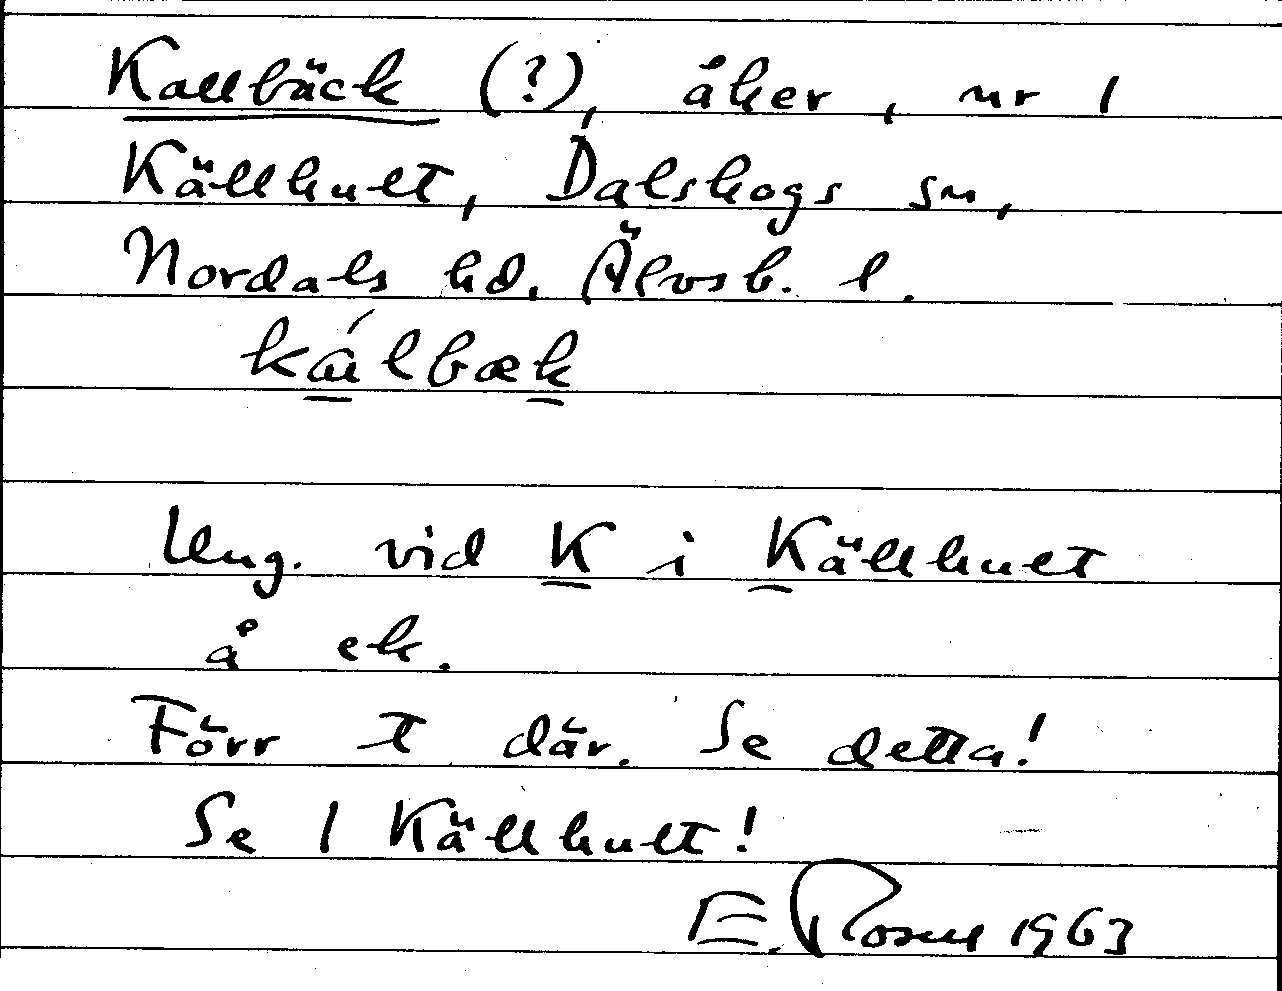 Kallbäck (?), åker, nr 1
Källhult, Dalskogs sn,
Nordals hd. Älvsb. l.
Ung. vid K i Källhult
å ek.
Förr t där. Se detta!
Se 1 Källhult!
E. Rosell 1963